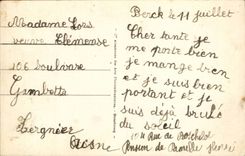 Madame Lors
veuve Clémense
106 boulvare
Gambetta
Tergnier
Aisne
Berck le 11 juillet
Cher tante je
me porte bien
je mange bien
et je suis bien
portant et je
suis déjà brulé
du soleil
Rue de
Pension de